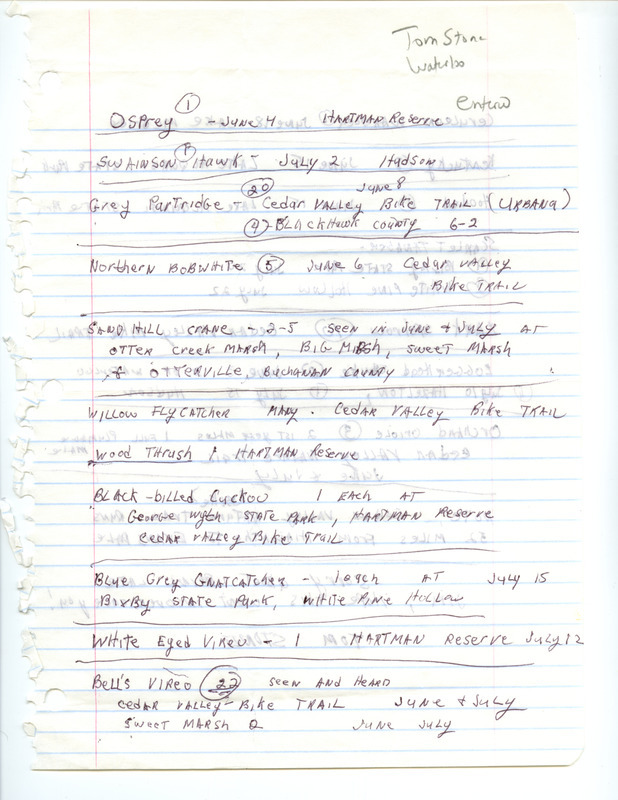 Tom Stone
Waterloo
Osprey ① - June 4 Hartman Reserve
Swainson Hawk - July 2 Hudson
Grey Partridge - ⑳ Cedar Valley Bike Trail June 8 (Urbana)
④ - Blackhawk county 6-2
Northern Bobwhite ⑤ June 6 Cedar Valley
Bike Trail
Sand Hill Crane - 2-5 seen in June & July at
Otter Creek Marsh, Big Marsh, Sweet Marsh
& Otterville, Buchanan County
Willow Flycatcher Many. Cedar Valley Bike Trail
Wood Thrush 1 Hartman Reserve
Black-billed Cuckoo 1 each at
George Wyth State Park, Hartman Reserve
Cedar Valley Bike Trail
Blue Grey Gnatcatcher - 1 each at July 15
Bixby State Park, White Pine Hollow
White Eyed Vireo - 1 Hartman Reserve July 12
Bell's Vireo ㉒ seen and heard
Cedar Valley - Bike Trail June & July
Sweet Marsh 2 June July